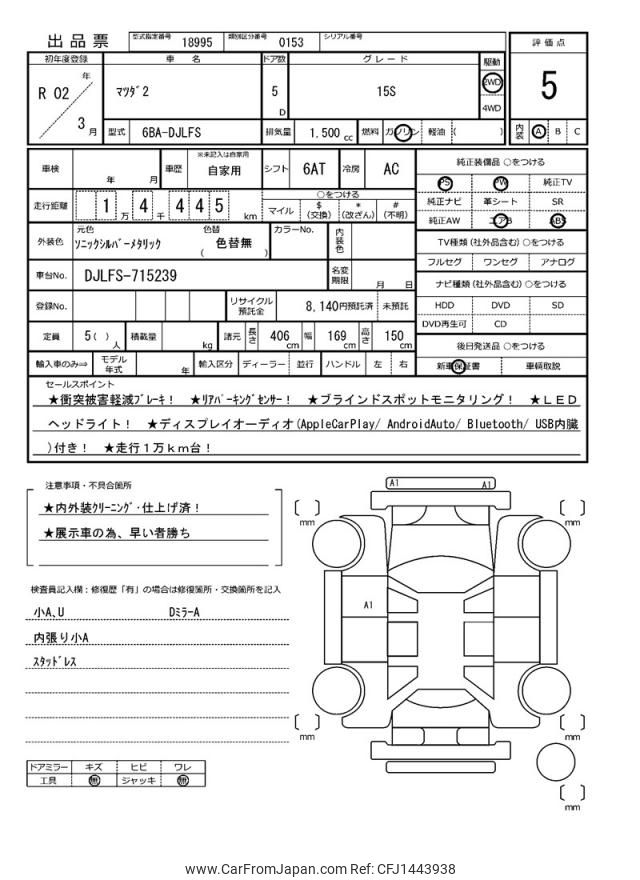 出品票 型式指定番号 18995 類別区分番号 0153 シリアル番号
初年度登録 車名 ドア数 グレード 駆動 評価点
R 02 年 3 月 マツダ2 5 D 15S 2WD 4WD 5
型式 6BA-DJLFS 排気量 1.500 cc 燃料 ガソリン 軽油 ( ) 内装 A B C
車検 年 月 車歴 ※未記入は自家用 自家用 シフト 6AT 冷房 AC 純正装備品 ○をつける
PS PW 純正TV
走行距離 1 万 4 千 4 4 5 km ○をつける 純正ナビ 革シート SR
マイル $ (交換) * (改ざん) # (不明) 純正AW エアB ABS
外装色 元色 ソニックシルバーメタリック 色替 ( 色替無 ) カラーNo. 内装色 TV種類 (社外品含む) ○をつける
フルセグ ワンセグ アナログ
車台No. DJLFS-715239 名変期限 月 日 ナビ種類 (社外品含む) ○をつける
登録No. リサイクル預託金 8,140円預託済 未預託 HDD DVD SD
DVD再生可 CD
定員 5 ( ) 人 積載量 kg 諸元 長さ 406 cm 幅 169 cm 高さ 150 cm 後日発送品 ○をつける
輸入車のみ⇒ モデル年式 年 輸入区分 ディーラー 並行 ハンドル 左 右 新車保証書 車輌取説
セールスポイント
★衝突被害軽減ブレーキ! ★リアパーキングセンサー! ★ブラインドスポットモニタリング! ★LED
ヘッドライト! ★ディスプレイオーディオ(AppleCarPlay/ AndroidAuto/ Bluetooth/ USB内臓
)付き! ★走行1万km台!
注意事項・不具合箇所
★内外装クリーニング・仕上げ済!
★展示車の為、早い者勝ち
検査員記入欄：修復歴「有」の場合は修復箇所・交換箇所を記入
小A、U Dミラ-A
内張り小A
スタッドレス
ドアミラー キズ ヒビ ワレ
工具 無 ジャッキ 無
A1 A1
[ ] mm [ ] mm
A1
[ ] mm [ ] mm
[ ] mm
www.CarFromJapan.com Ref: CFJ1443938